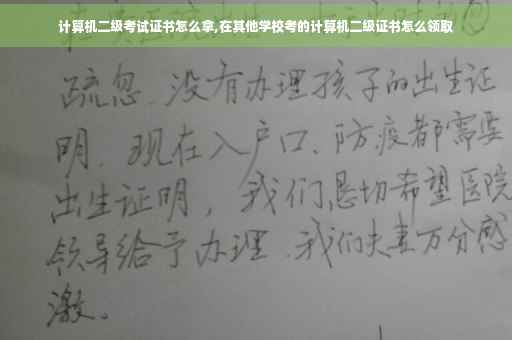 计算机二级考试证书怎么拿,在其他学校考的计算机二级证书怎么领取
疏忽、没有办理孩子的出生证
明、现在入户口、防疫都需要
出生证明，我们恳切希望医院
领导给予办理、我们夫妻万分感
激。